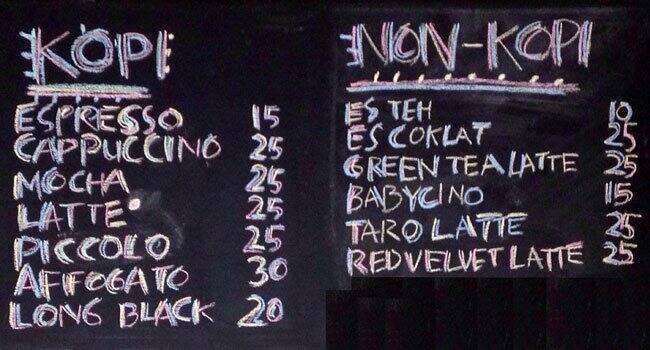 KOPI
ESPRESSO 15
CAPPUCCINO 25
MOCHA 25
LATTE 25
PICCOLO 25
AFFOGATO 30
LONG BLACK 20
NON-KOPI
ES TEH 10
ES COKLAT 25
GREEN TEA LATTE 25
BABYCINO 15
TARO LATTE 25
RED VELVET LATTE 25